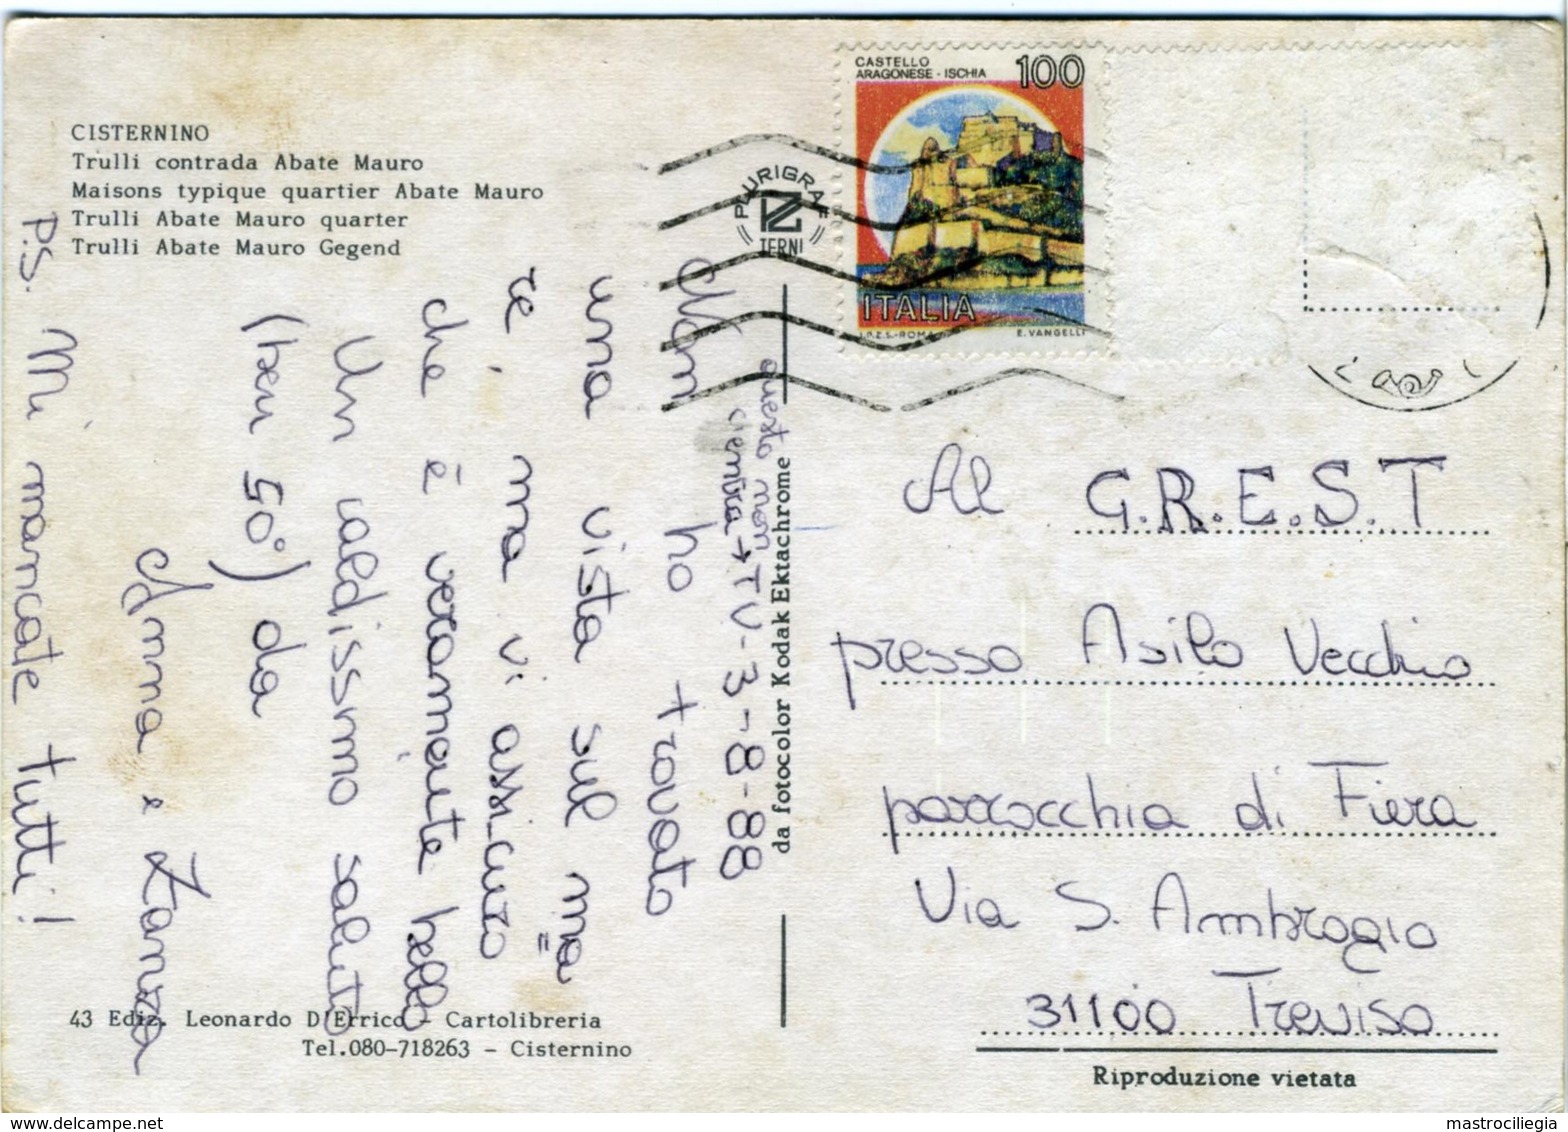 CISTERNINO
Trulli contrada Abate Mauro
Maisons typique quartier Abate Mauro
Trulli Abate Mauro quarter
Trulli Abate Mauro Gegend
PLURIGRAF
TERNI
CASTELLO
ARAGONESE - ISCHIA
100
ITALIA
I.P.Z.S.-ROMA
E. VANGELLI
questo non
c'entra → TV-3-8-88
Non ho trovato
una vista sul ma
re, ma vi assi_curo
che è veramente bello
Un caldissmo saluto
(ben 50°) da
Anna e
P.S. Mi mancate tutti!
da fotocolor Kodak Ektachrome
Al G.R.E.S.T
presso Asilo Vecchio
parrocchia di Fiera
Via S. Ambrogio
31100 Treviso
43 Ediz. Leonardo D'Errico - Cartolibreria
Tel.080-718263 - Cisternino
Riproduzione vietata
mastrociliegia